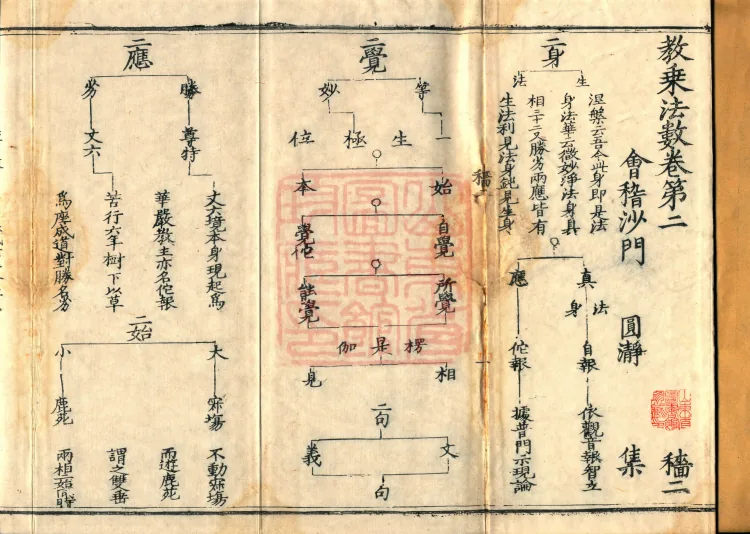 教乗法數卷第二
穡二
會稽沙門 圓瀞 集
二身
生
法
涅槃云吾今此身即是法
身法華云微妙淨法身具
相三十二又勝劣兩應皆有
生法利見法身鈍見生身
真
法
身
自報
依觀音報智立
應
佗報
據普門示現論
穡
二
一
二覺
等
妙
一
生
極
位
始
本
自覺
覺佗
所覺
能覺
楞
具
伽
相
見
二句
文
義
句
二應
勝
劣
尊特
丈六
丈六境本身現起爲
華嚴教主亦名佗報
苦行六年樹下以草
爲座成道對勝名劣
二始
大
小
寂場
鹿苑
不動寂塲
而遊鹿苑
謂之雙垂
兩相始同時